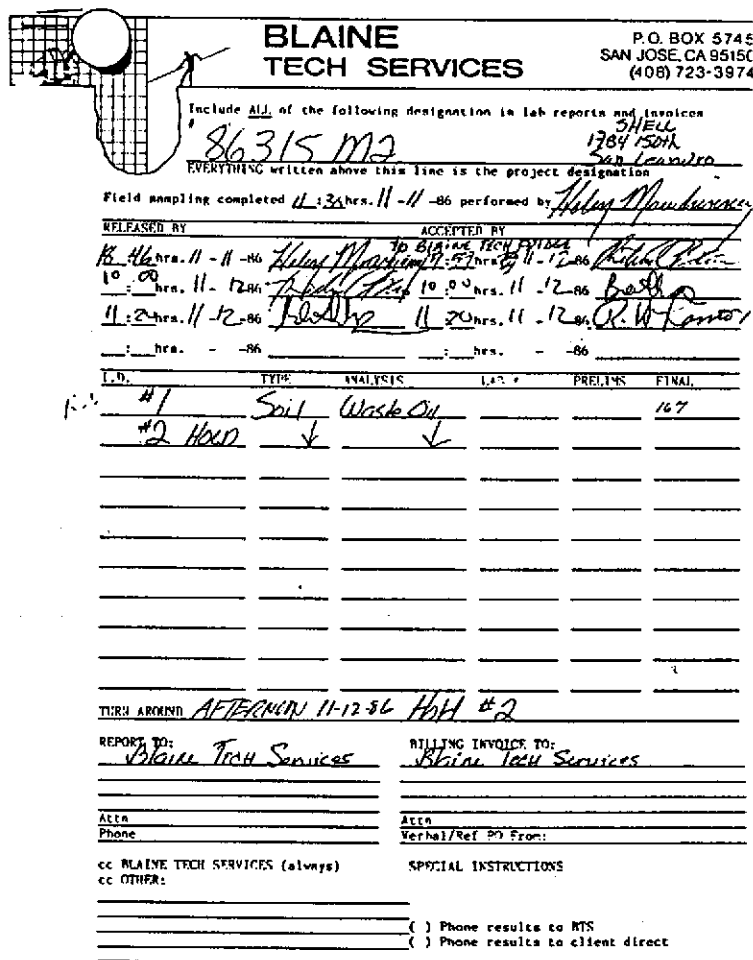 BLAINE
TECH SERVICES
P.O. BOX 5745
SAN JOSE, CA 95150
(408) 723-3974
Include ALL of the following designation in lab reports and invoices
# 86315 M2
SHELL
1784 150th
San Leandro
EVERYTHING written above this line is the project designation
Field sampling completed 11:30hrs. 11-11-86 performed by
RELEASED BY ACCEPTED BY
18:46hrs. 11-11-86 TO BLAINE TECH 7:57hrs 11-12-86
10:00hrs. 11-12-86 10:00hrs. 11-12-86
11:20hrs. 11-12-86 11:20hrs. 11-12-86
__:__hrs. - -86 __:__hrs. - -86
I.D. TYPE ANALYSIS LAB # PRELIMS FINAL
#1 Soil Waste Oil 167
#2 HOLD ↓ ↓
TURN AROUND AFTERNOON 11-12-86 Hold #2
REPORT TO: BILLING INVOICE TO:
Blaine Tech Services Blaine Tech Services
Attn Attn
Phone Verbal/Ref PO From:
cc BLAINE TECH SERVICES (always) SPECIAL INSTRUCTIONS
cc OTHER:
( ) Phone results to BTS
( ) Phone results to client direct